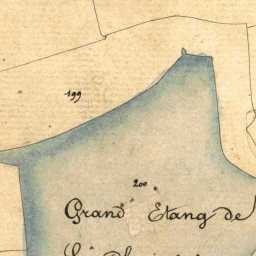 199
200
Grand Etang de